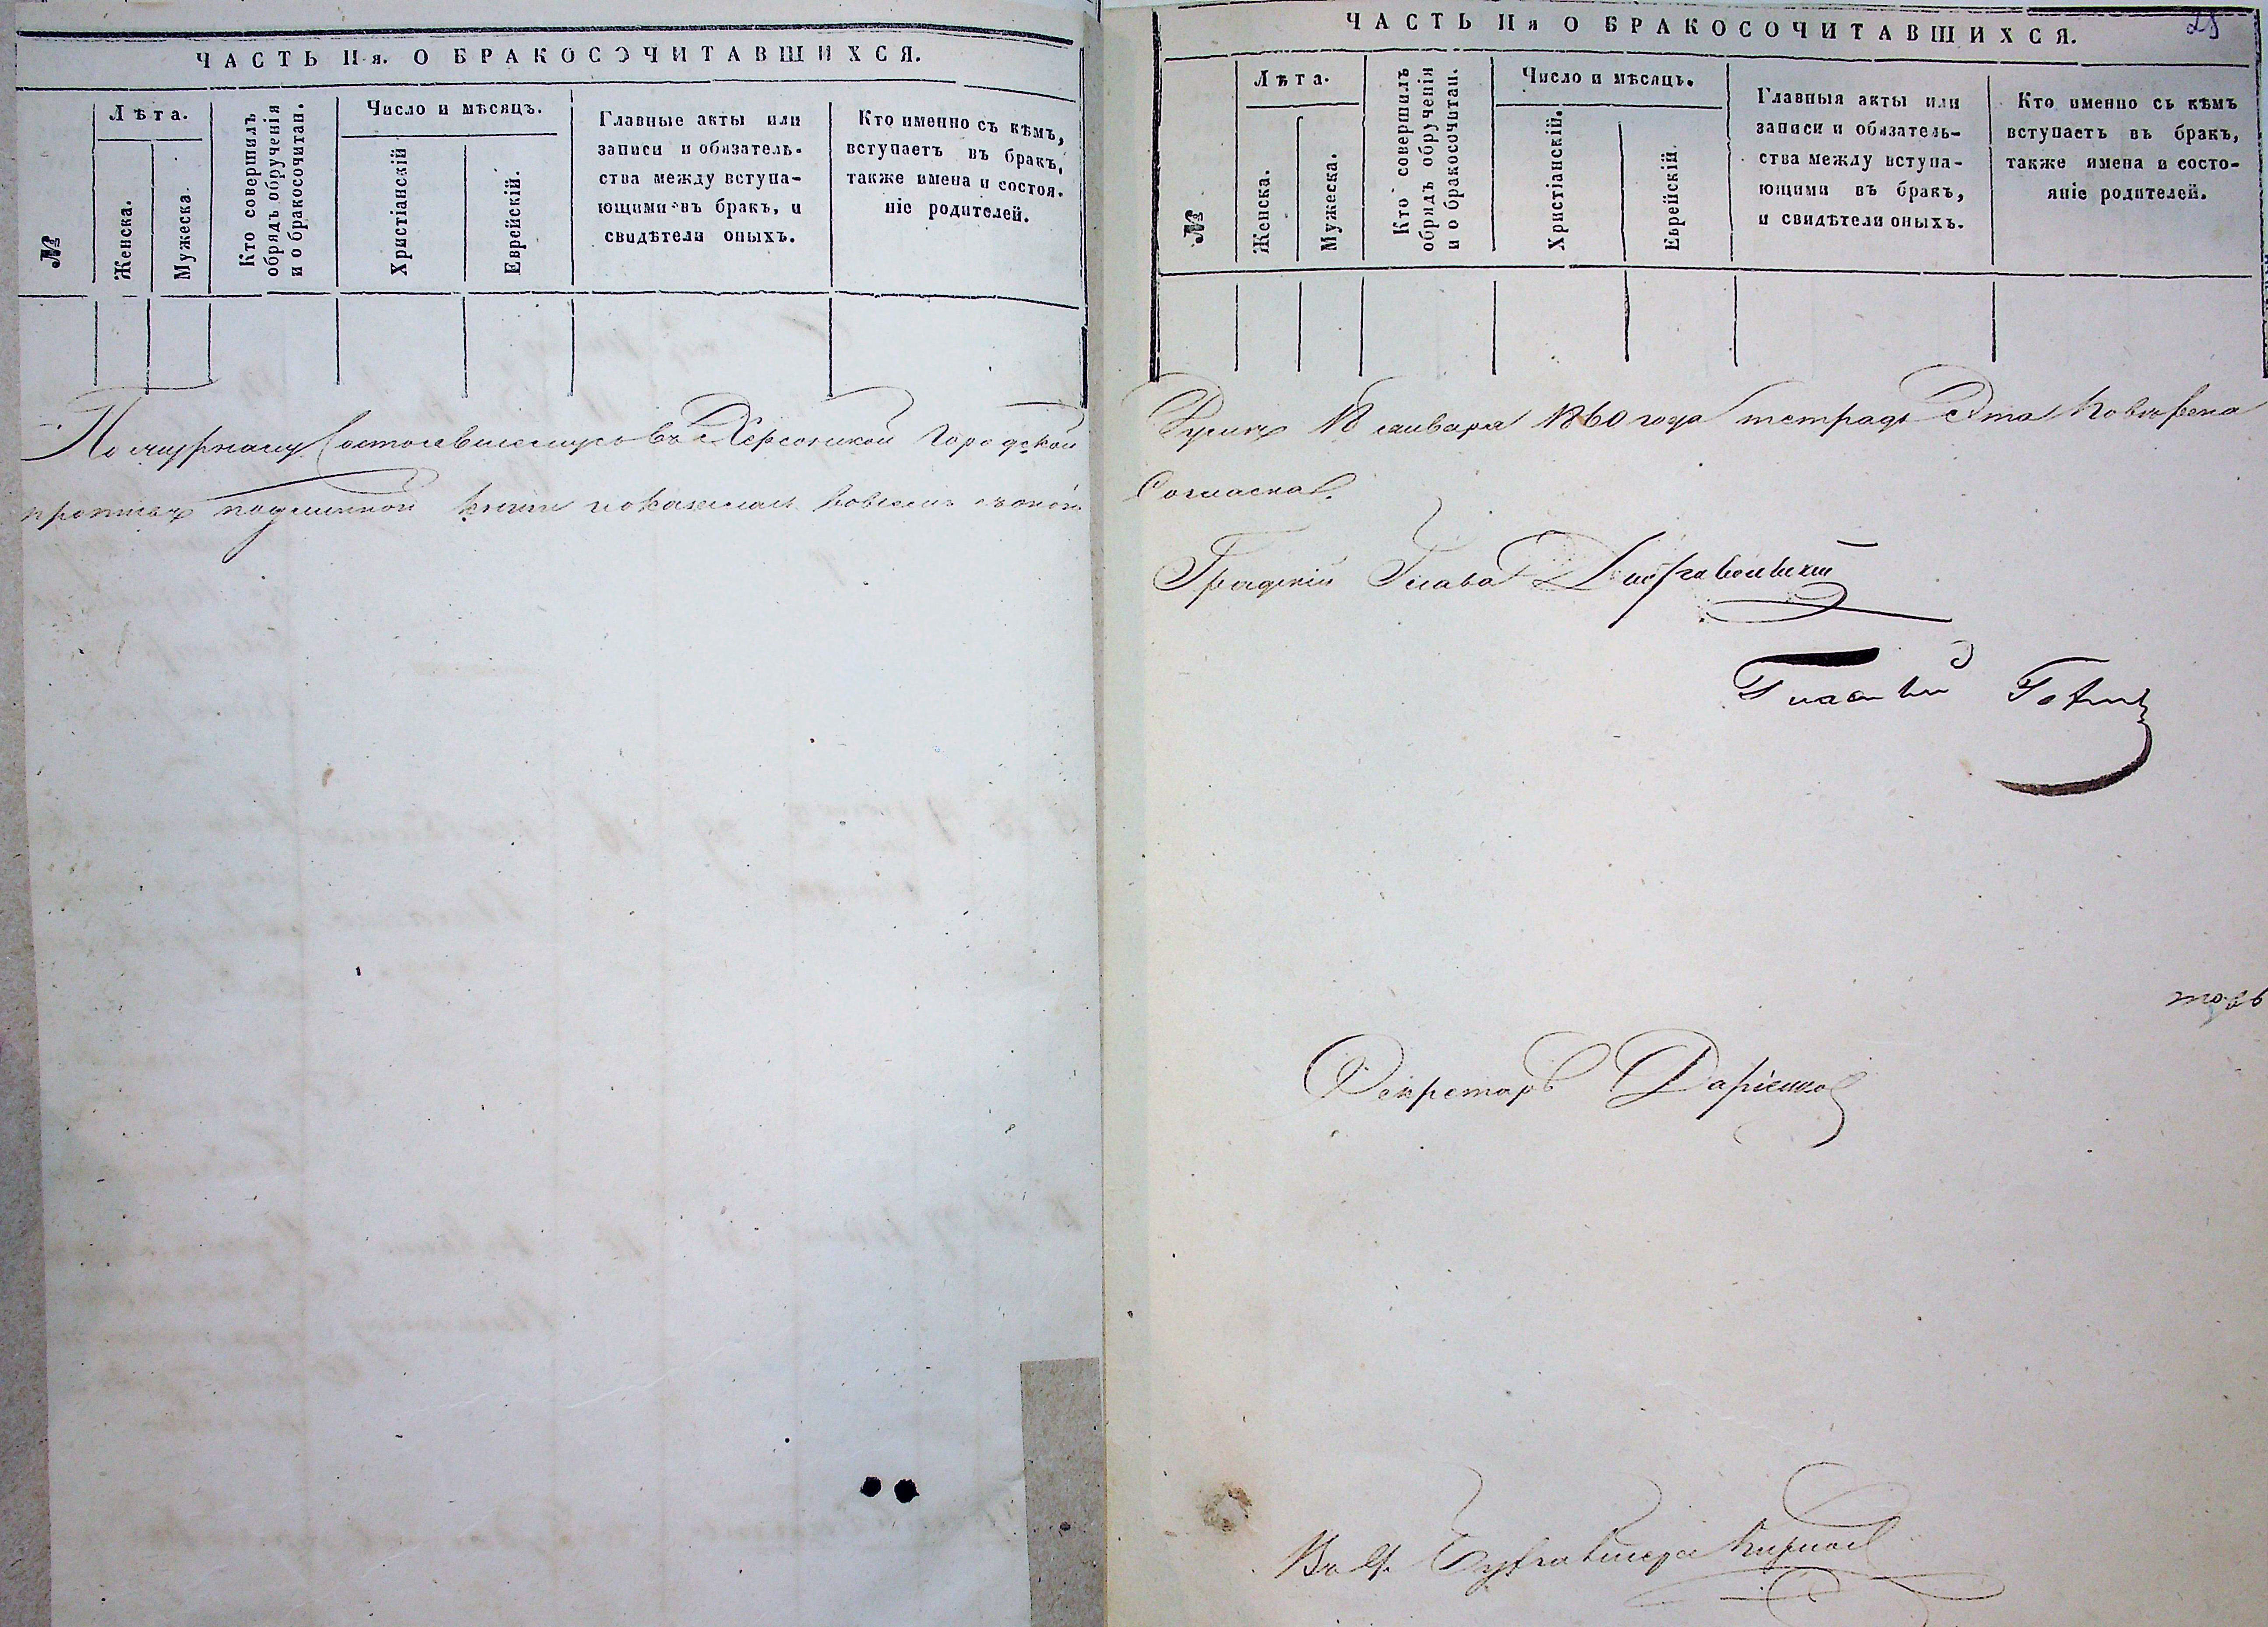 ЧАСТЬ II-я. О БРАКОСОЧИТАВШИХСЯ.
№
Лѣта.
Женска.
Мужеска.
Кто совершилъ
обрядъ обрученія
и о бракосочитан.
Число и мѣсяцъ.
Христіанскій
Еврейскій.
Главные акты или
записи и обязатель-
ства между вступа-
ющими въ бракъ, и
свидѣтели оныхъ.
Кто именно съ кѣмъ,
вступаетъ въ бракъ,
также имена и состоя-
ніе родителей.
По журналу состоявшемуся въ Херсонской Городской
противъ подлинной книги
ЧАСТЬ IIя О БРАКОСОЧИТАВШИХСЯ.
№
Лѣта.
Женска.
Мужеска.
Кто совершилъ
обрядъ обрученія
и о бракосочитан.
Число и мѣсяцъ.
Христіанскій.
Еврейскій.
Главныя акты или
записи и обязатель-
ства между вступа-
ющими въ бракъ,
и свидѣтели оныхъ.
Кто именно съ кѣмъ
вступаетъ въ бракъ,
также имена и состо-
яніе родителей.
Думѣ 18 января 1860 года тетрадь эта повѣрена
Согласна.
Градскій Глава
Гласный
Секретарь